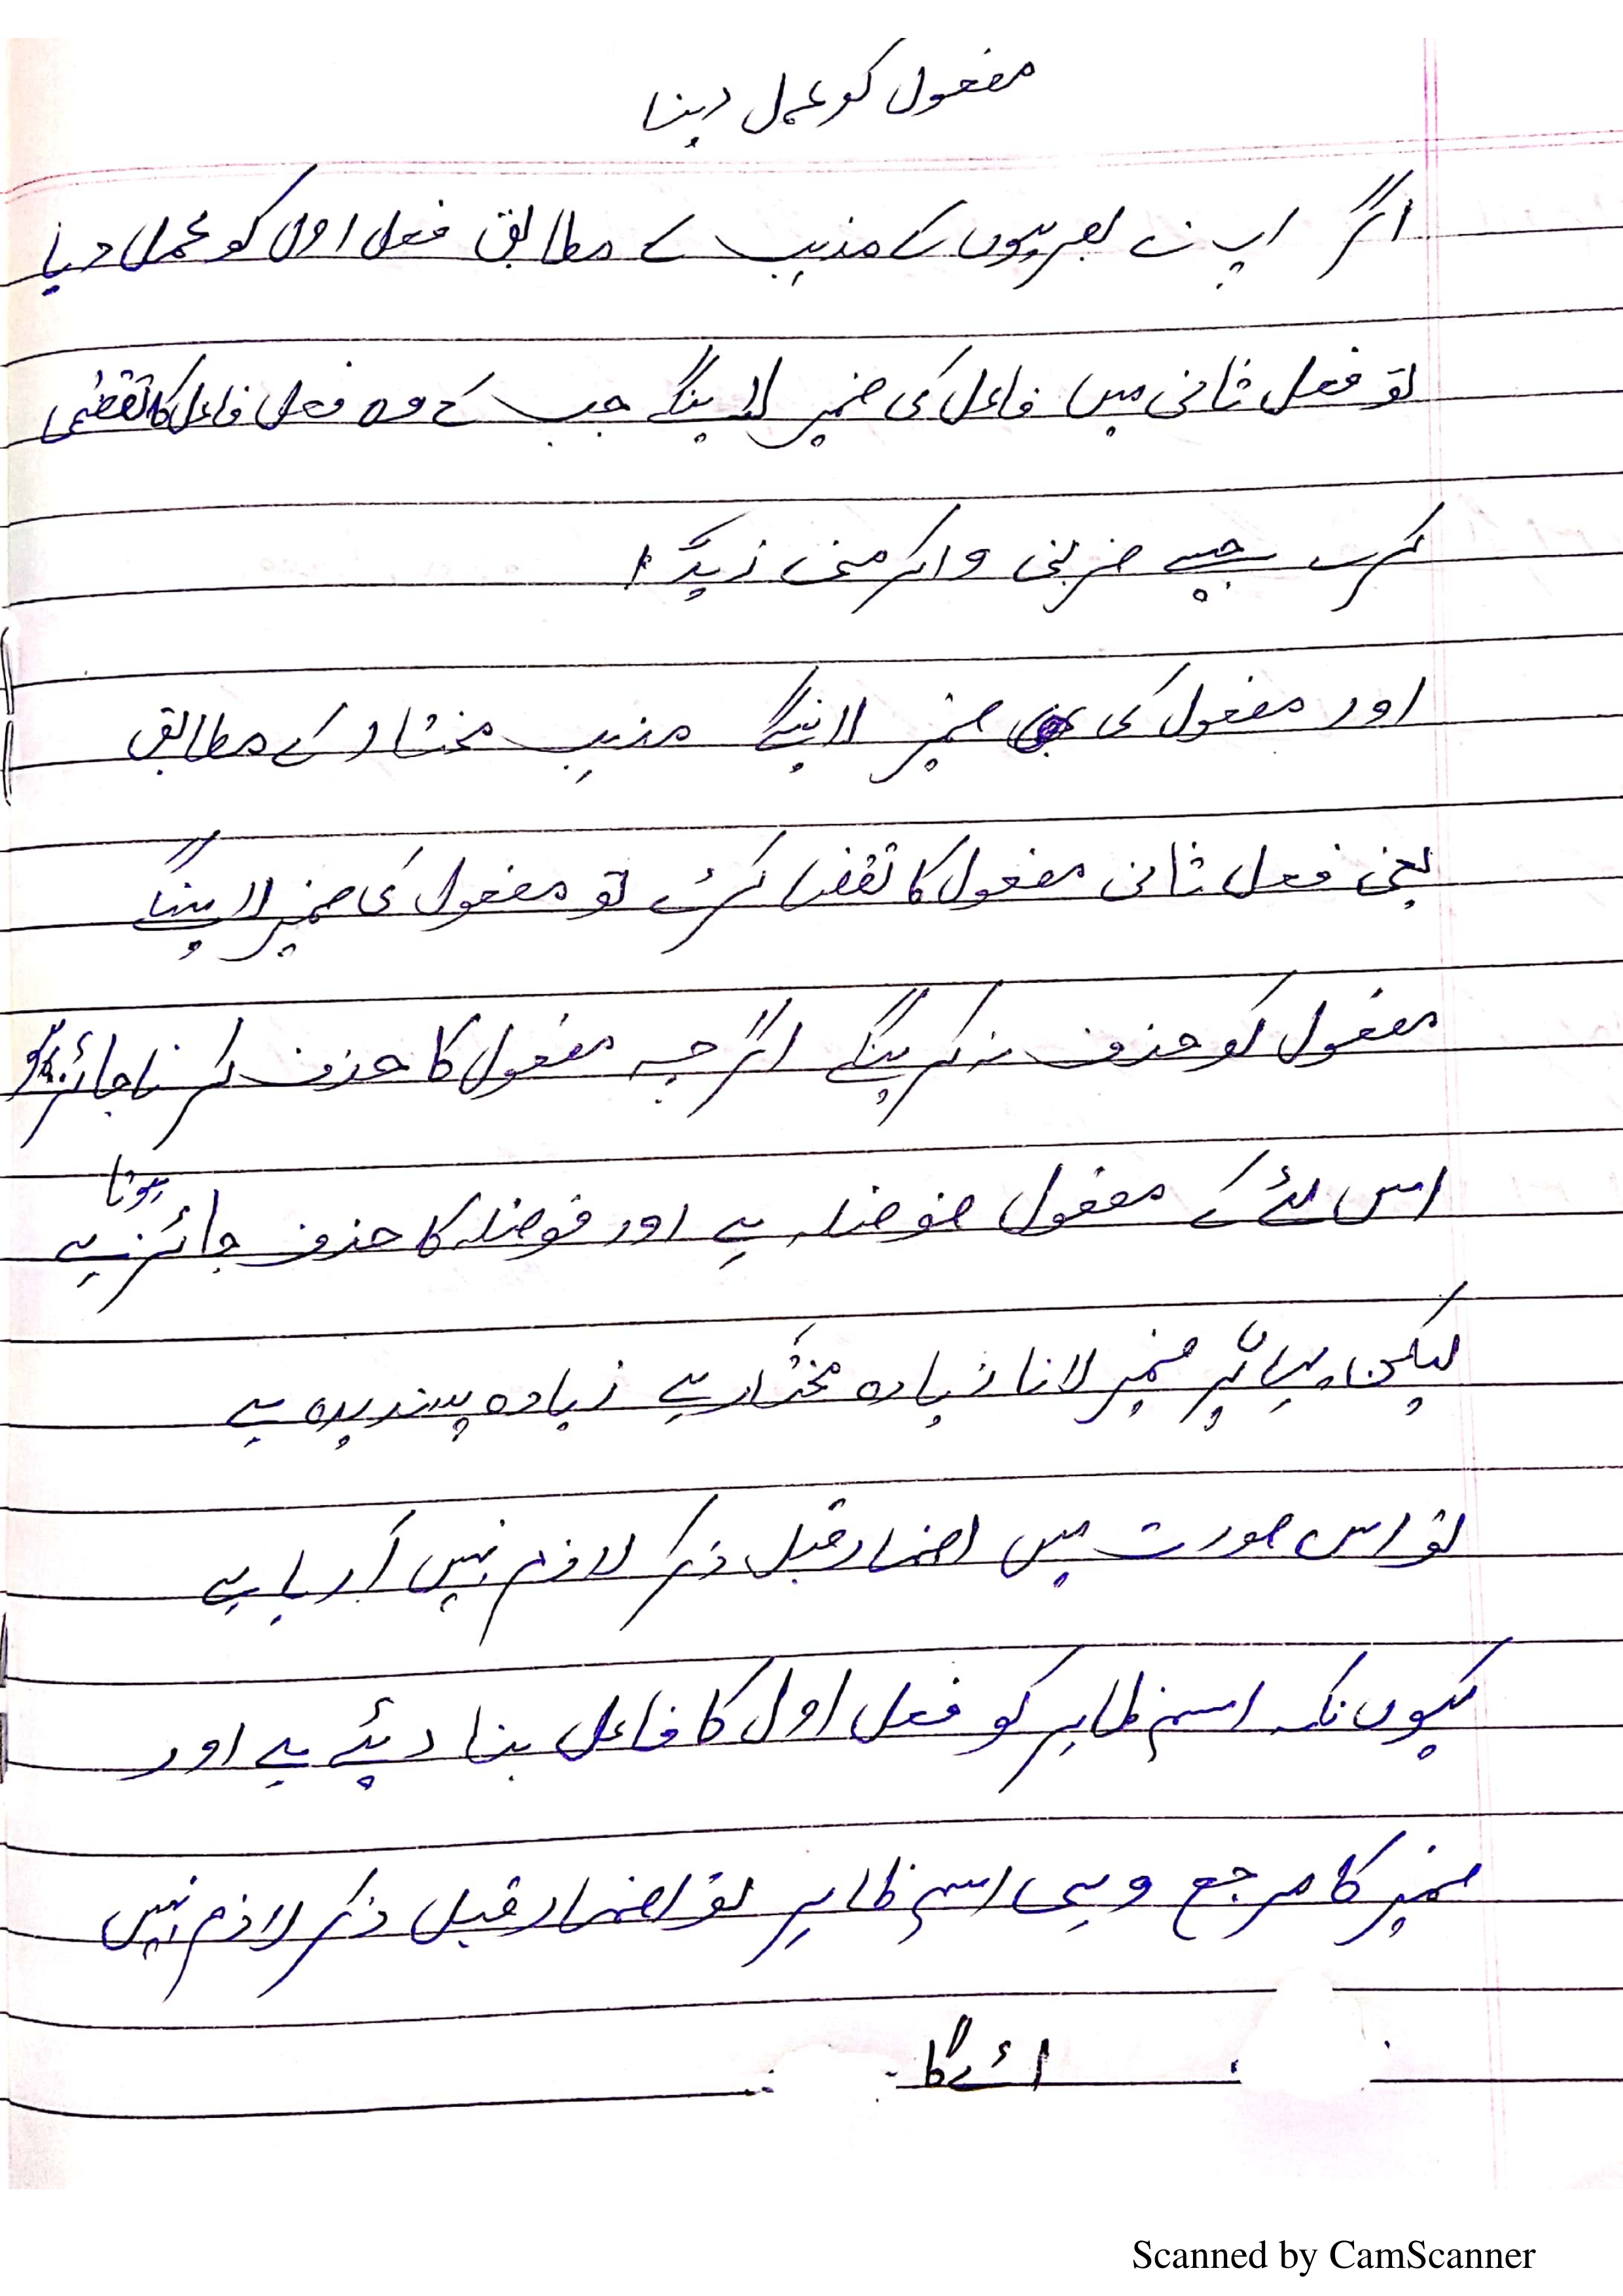 مفعول کو عمل دینا
اگر اپ نے بصریوں کے مذہب کے مطابق فعل اول کو عمل دیا
تو فعل ثانی میں فاعل کی ضمیر لاینگے جب کے وہ فعل فاعل کا تقضی
کرے جیسے ضربنی واکرمنی زیدٌ ا
اور مفعول کی ضمیر لاینگے مذہب مختار کے مطابق
یعنی فعل ثانی مفعول کا تقضا کرے تو مفعول کی ضمیر لاینگے
مفعول کو حذف نہ کرینگے اگر چہ مفعول کا حذف کرنا جائز
اس لئے کے مفعول فوضلہ ہے اور فوضلہ کا حذف جائز ہوتا ہے
لیکن یہاں پر ضمیر لانا زیادہ مختار ہے زیادہ پسندیدہ ہے
تو اس صورت میں اضمار قبل ذکر لازم نہیں آرہا ہے
کیوں نکہ اسم ظاہر کو فعل اول کا فاعل بنا دیئے ہے اور
ضمیر کا مرجع وہی اسم ظاہر تو اضمار قبل ذکر لازم نہیں
ائے گا
Scanned by CamScanner